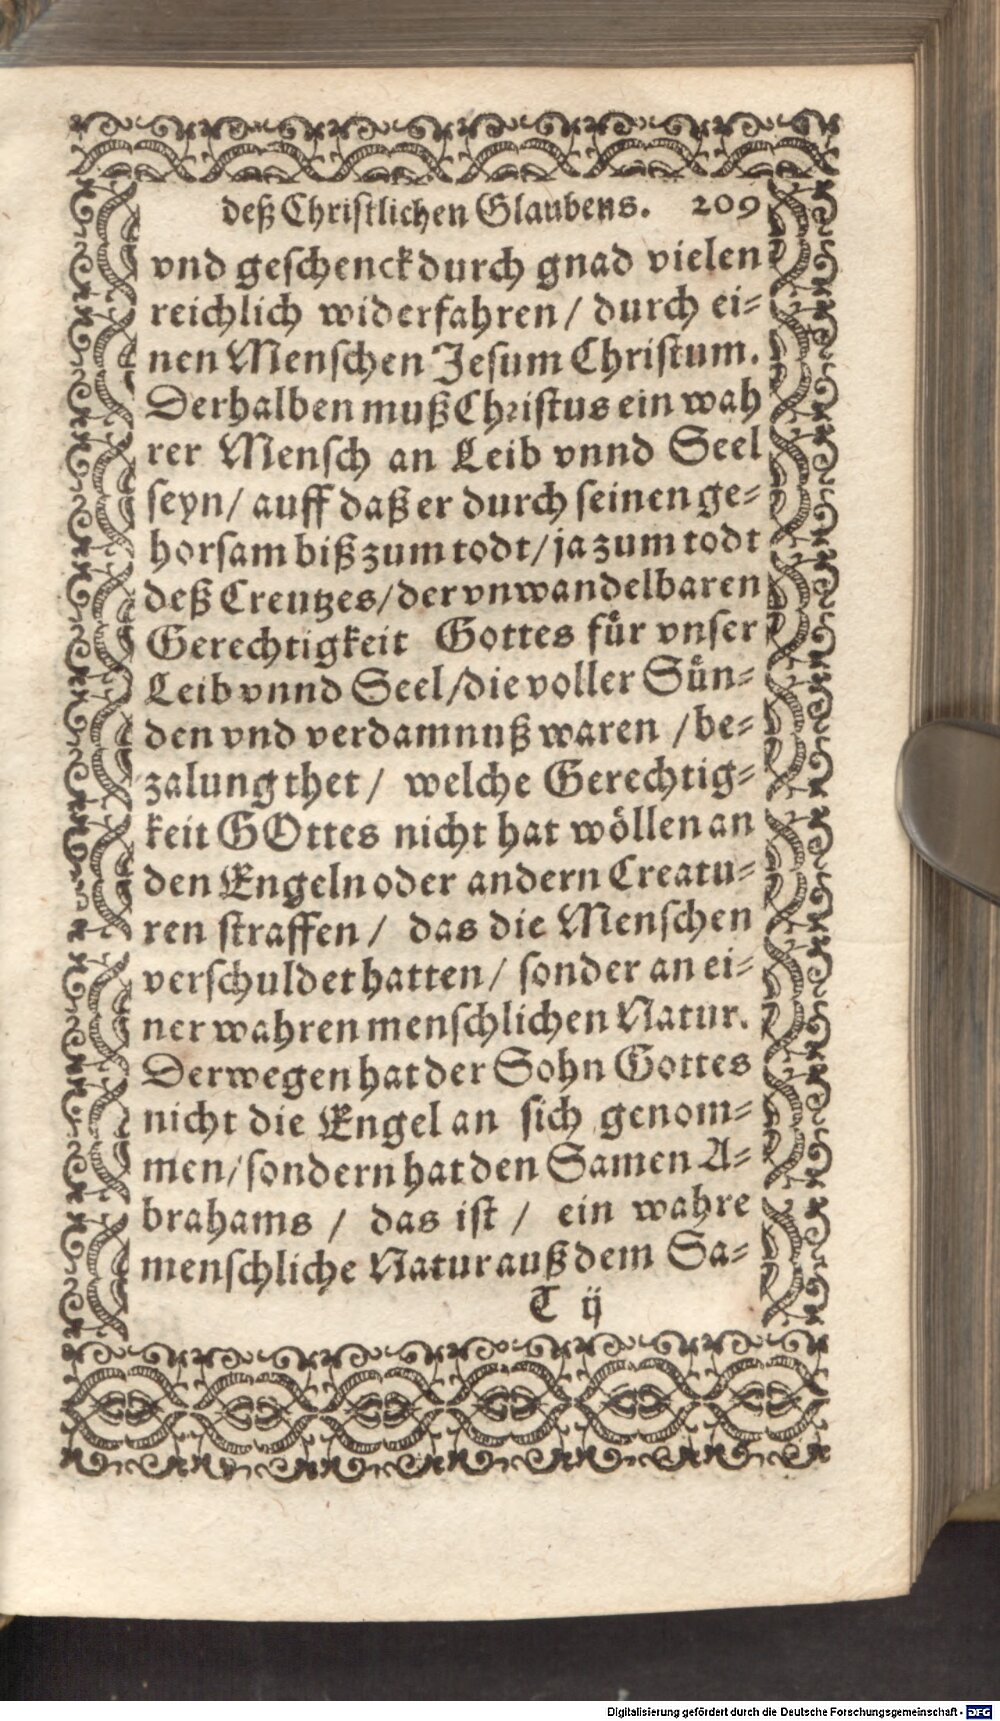 deß Christlichen Glaubens. 209
vnd geschenck durch gnad vielen
reichlich widerfahren / durch ei⸗
nen Menschen Jesum Christum.
Derhalben muß Christus ein wah
rer Mensch an Leib vnnd Seel
seyn / auff daß er durch seinen ge⸗
horsam biß zum todt / ja zum todt
deß Creutzes / der vnwandelbaren
Gerechtigkeit Gottes fuͤr vnser
Leib vnnd Seel / die voller Suͤn⸗
den vnd verdamnuß waren / be⸗
zalung thet / welche Gerechtig⸗
keit GOttes nicht hat woͤllen an
den Engeln oder andern Creatu⸗
ren straffen / das die Menschen
verschuldet hatten / sonder an ei⸗
ner wahren menschlichen Natur.
Derwegen hat der Sohn Gottes
nicht die Engel an sich genom⸗
men / sondern hat den Samen A⸗
brahams / das ist / ein wahre
menschliche Natur auß dem Sa⸗
T ij
Digitalisierung gefördert durch die Deutsche Forschungsgemeinschaft - DFG